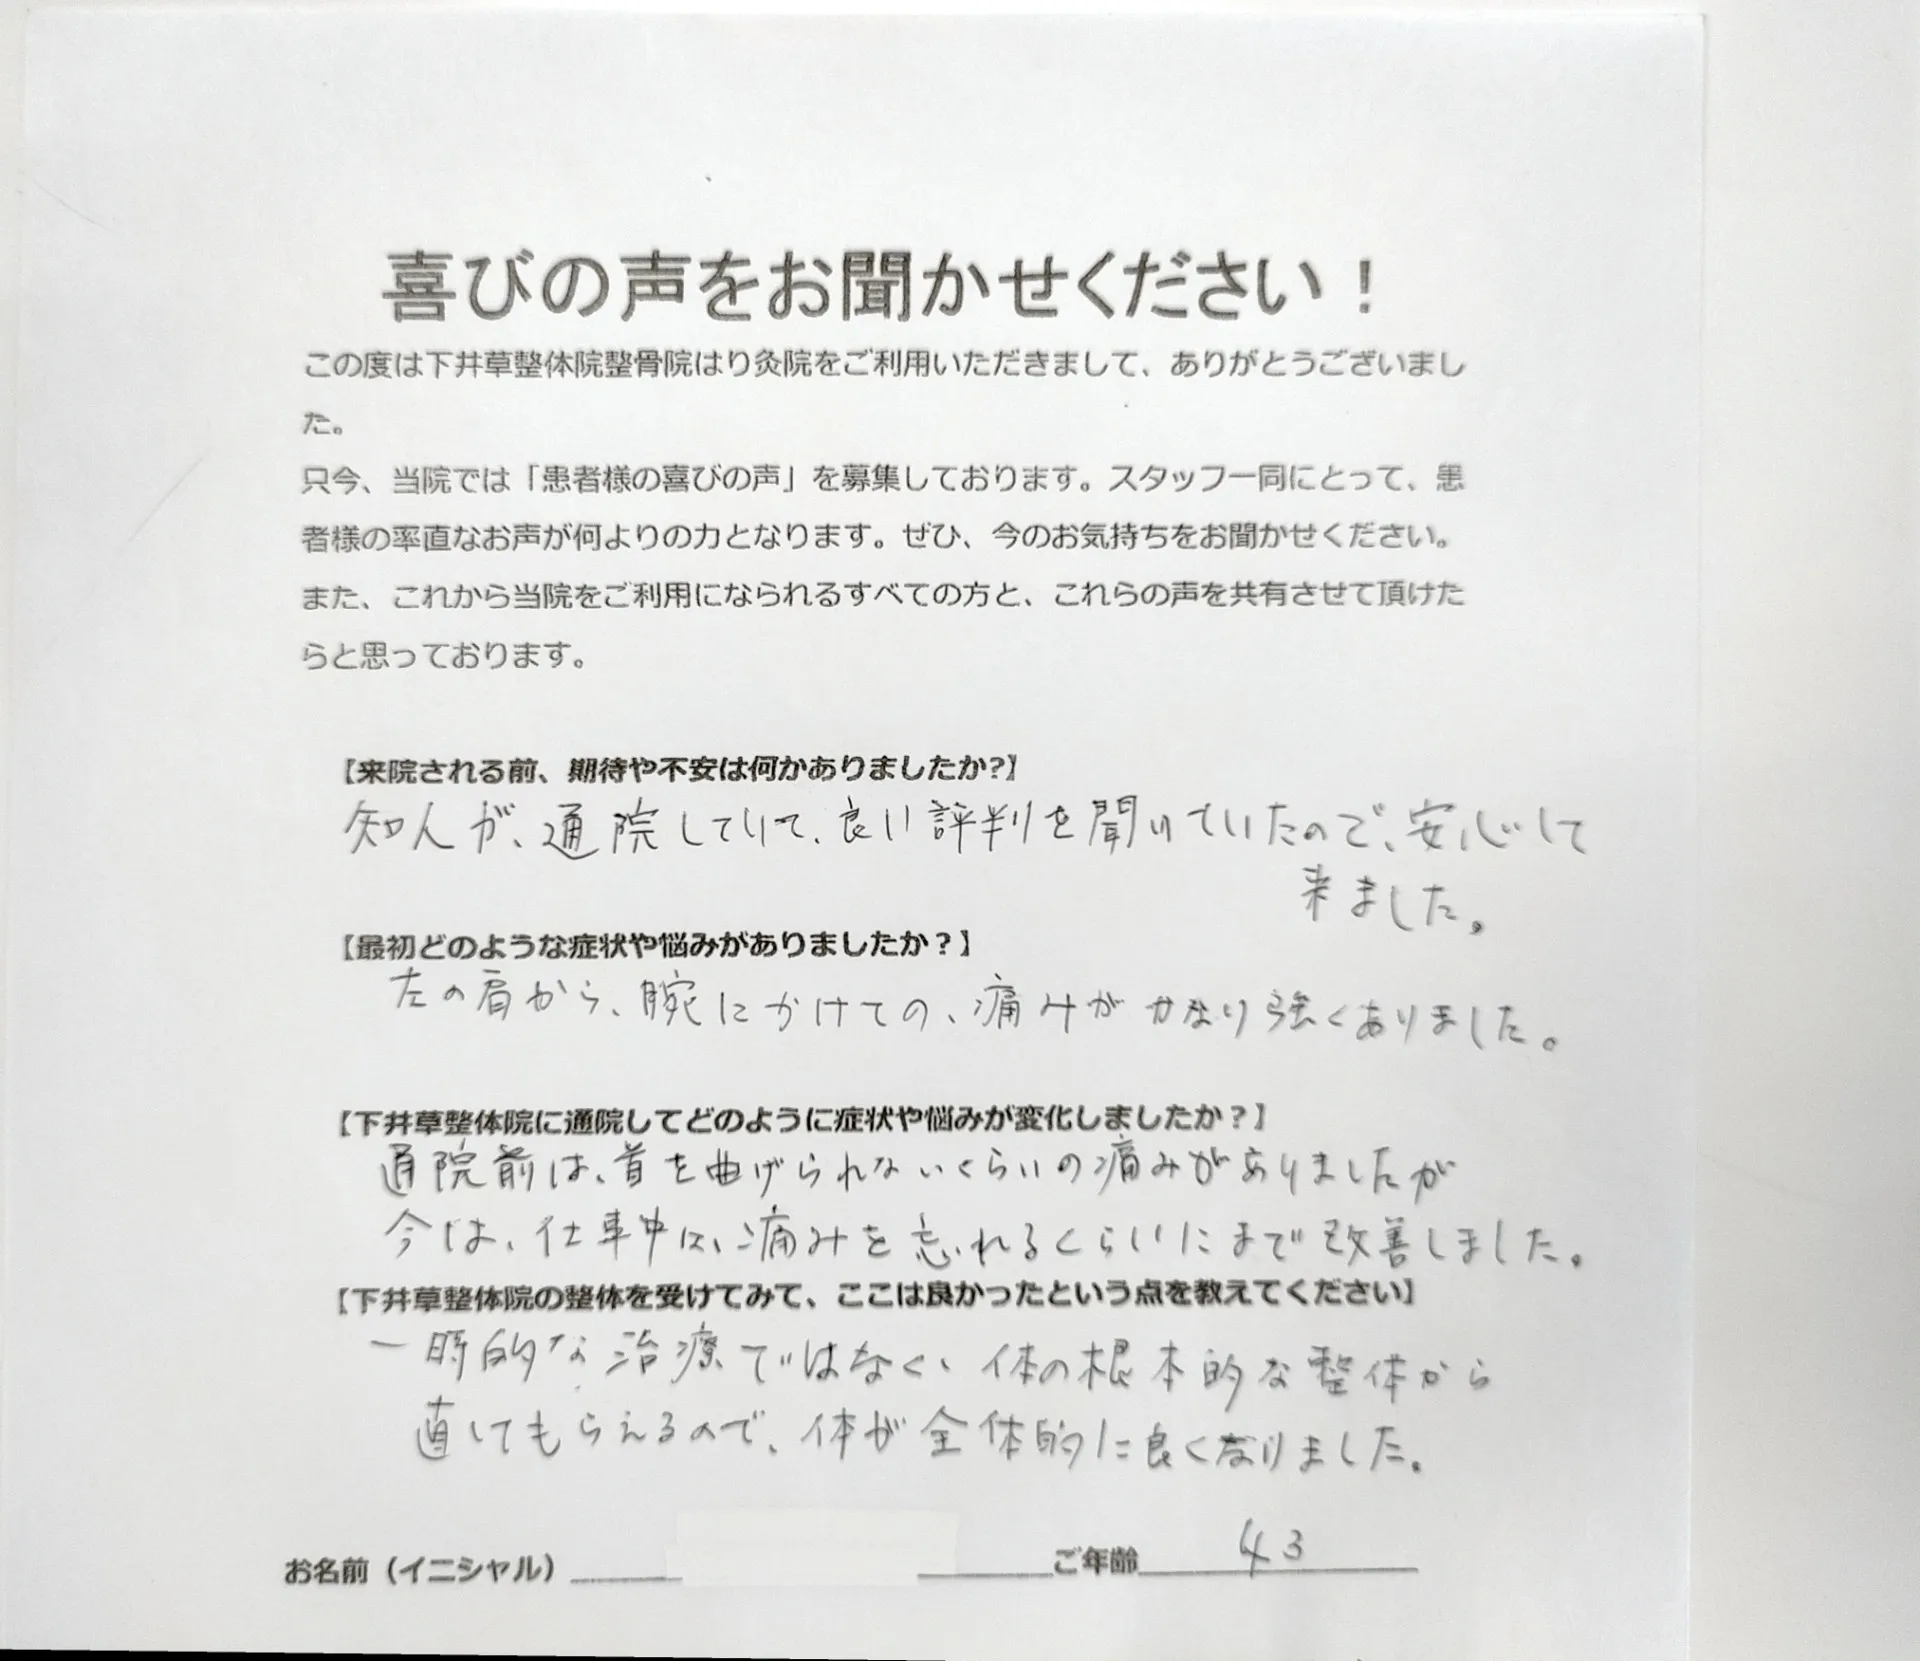 喜びの声をお聞かせください！
この度は下井草整体院整骨院はり灸院をご利用いただきまして、ありがとうございまし
た。
只今、当院では「患者様の喜びの声」を募集しております。スタッフ一同にとって、患
者様の率直なお声が何よりの力となります。ぜひ、今のお気持ちをお聞かせください。
また、これから当院をご利用になられるすべての方と、これらの声を共有させて頂けた
らと思っております。
【来院される前、期待や不安は何かありましたか?】
知人が、通院していて、良い評判を聞いていたので、安心して
来ました。
【最初どのような症状や悩みがありましたか？】
左の肩から、腕にかけての、痛みがかなり強くありました。
【下井草整体院に通院してどのように症状や悩みが変化しましたか？】
通院前は、首を曲げられないくらいの痛みがありましたが
今は、仕事中は、痛みを忘れるくらいにまで改善しました。
【下井草整体院の整体を受けてみて、ここは良かったという点を教えてください】
一時的な治療ではなく、体の根本的な整体から
直してもらえるので、体が全体的に良くなりました。
お名前（イニシャル） ご年齢 43